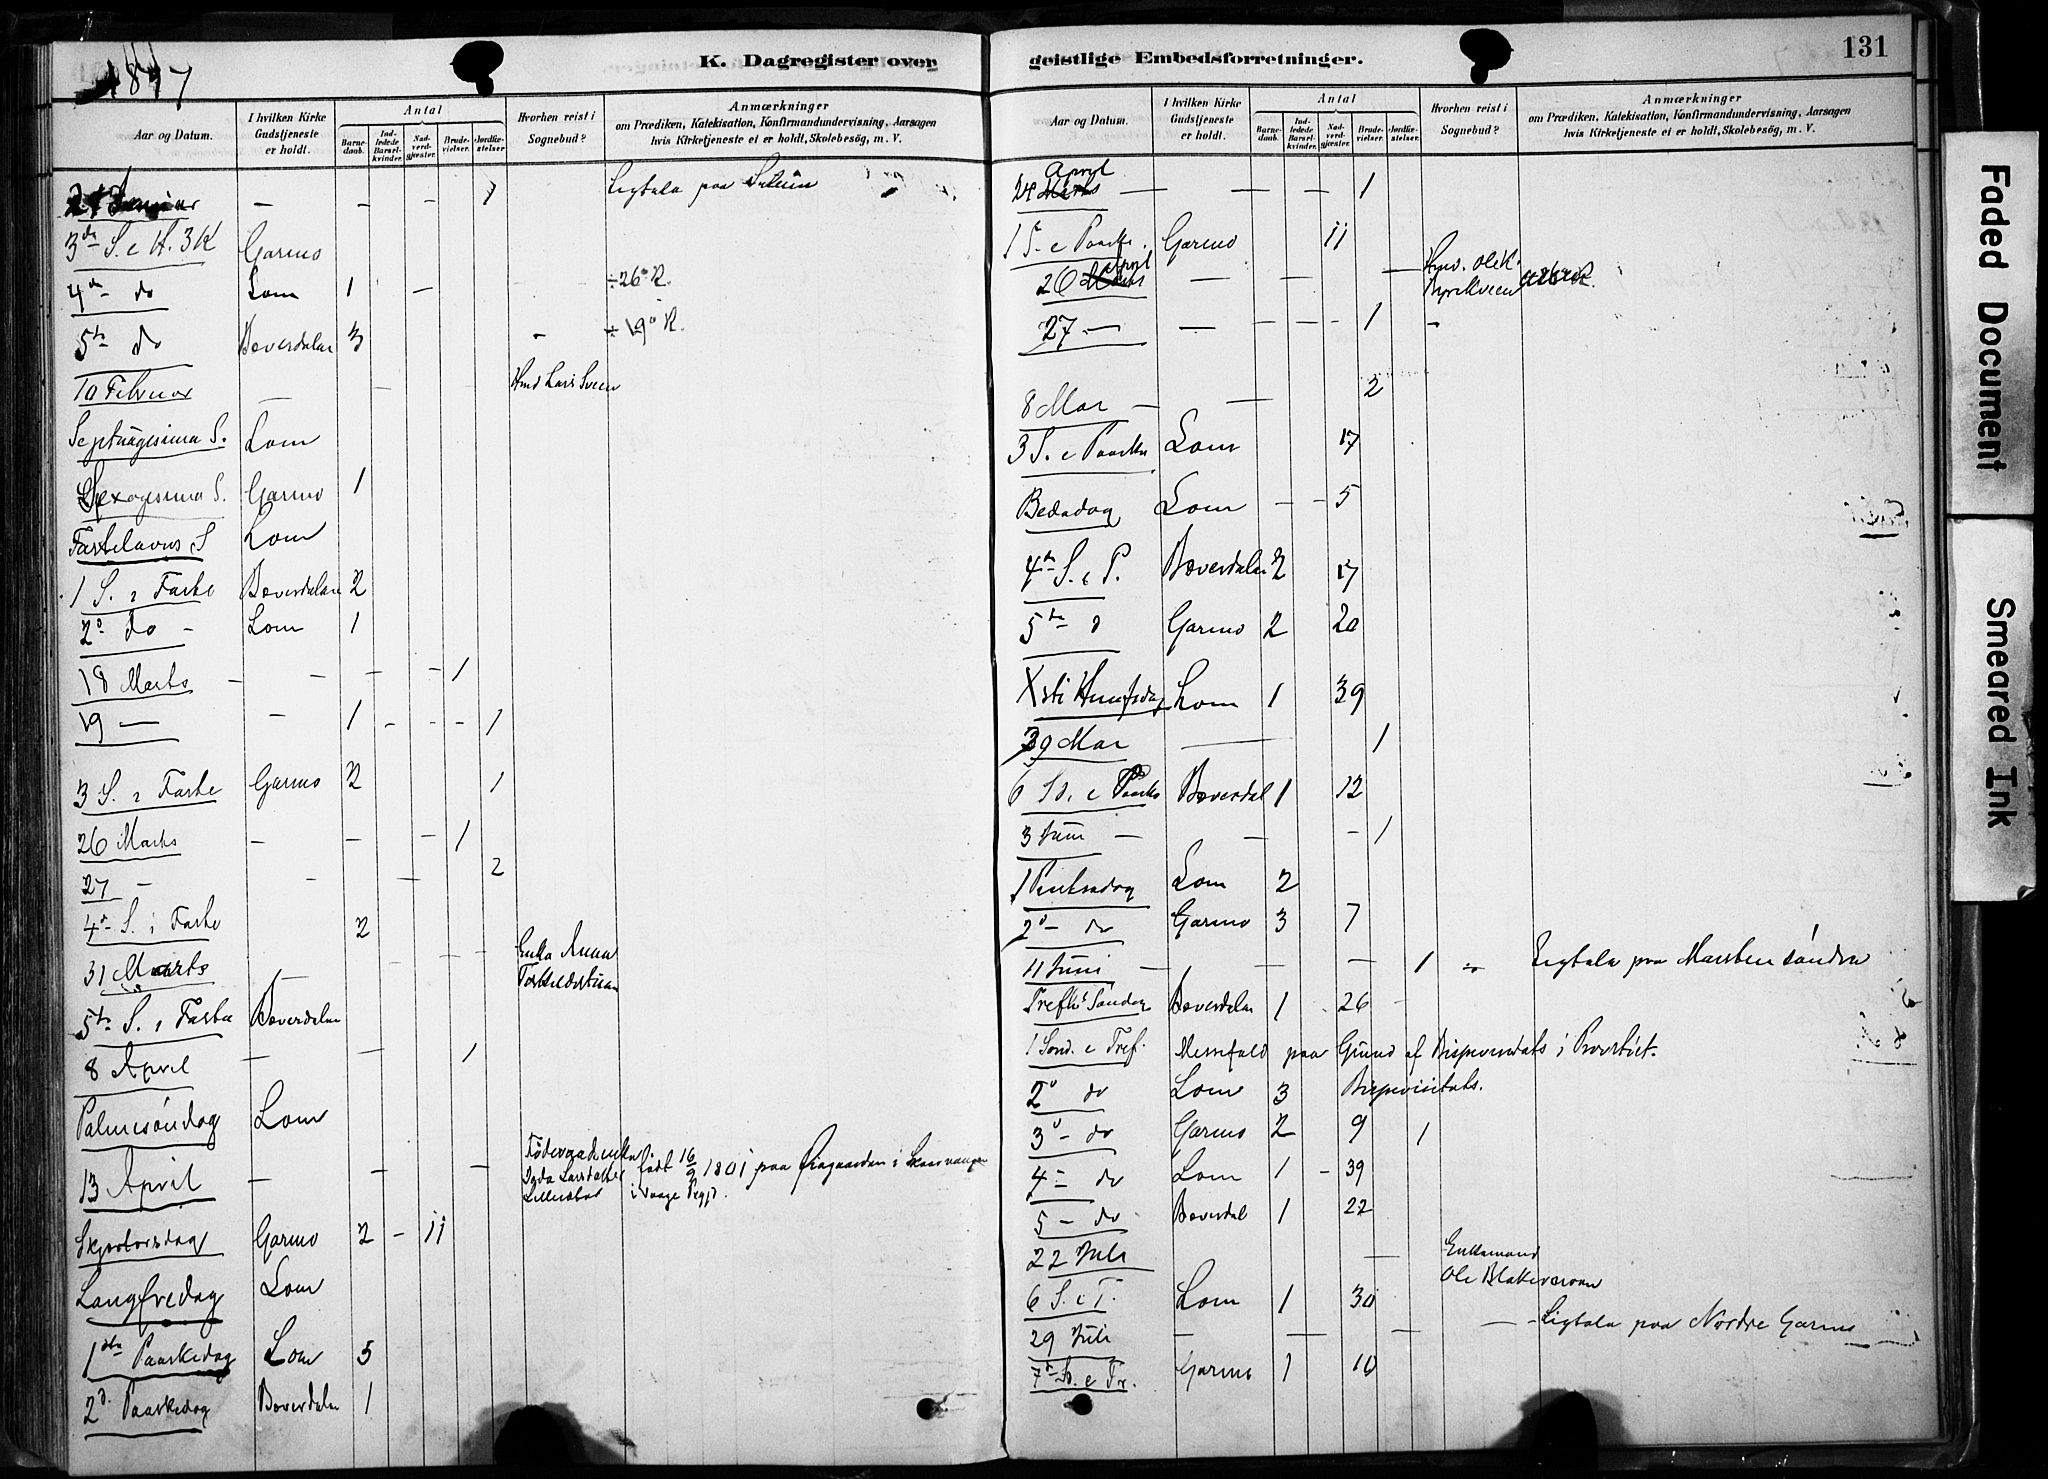 1897
K. Dagregister over
Aar og Datum. I hvilken Kirke Gudstjeneste er holdt. Antal Barnedaab. Indledede Barselkvinder. Nadverdgjæster. Brudevielser. Jordfæstelser. Hvorhen reist i Sognebud? Anmærkninger om Prædiken, Katekisation, Konfirmandundervisning, Aarsagen hvis Kirketjeneste ei er holdt, Skolebesög, m. V.
Januar — - - - 1 Ligtale paa
3de S. e H. 3 K Garmo
4de do Lom 1 — ÷26° R.
5te do Bæverdalen 3 - ÷19° R.
10 Februar — — - Hmd Lars Sveen
Septuagesima S. Lom
Sexagesima S. Garmo 1
Fastelavns S Lom
1 S. i Faste Bæverdalen 2
2d do - Lom 1
18 Marts — — — - 1
19 — - 1 - - - 1
3 S. i Faste Garmo 2 1
26 Marts — — - 1
27 - - — 2
4de S. i Faste 2
31 Marts — - - - Enke Anna
5te S. i Faste Bæverdalen
8 April — — 1
Palmesöndag Lom
13 April — - - Föderaadsenke Larsdatter född 16/9 1801 paa i Skarvangen
i Vaage Prgjd.
Skjærtorsdag Garmo 2 - 11
Langfredag Lom
1ste Paaskedag Lom 5
2d. Paaskedag Bæverdalen 1
geistlige Embedsforretninger.
131
Aar og Datum. I hvilken Kirke Gudstjeneste er holdt. Antal Barnedaab. Indledede Barselkvinder. Nadverdgjæster. Brudevielser. Jordfæstelser. Hvorhen reist i Sognebud? Anmærkninger om Prædiken, Katekisation, Konfirmandundervisning, Aarsagen hvis Kirketjeneste ei er holdt, Skolebesög, m. V.
April
24 Marts — — — 1
1 S. e Paaske. Garmo 11
April
26 Marts — — — Hmd. Ole K.
27 — — - - - 1 -
8 Mai — — 2
3 S. e Paaske Lom 17
Bededag Lom - - 5
4de S. e P. Bæverdalen 2 17
5te d Garmo 2 20
Xsti Himfsdag Lom 1 39
29 Mai — 1
6 S. e Paaske Bæverdal 1 12
3 Juni — - - 1
1 Pintsedag Lom 2
2d - do Garmo 3 7
4 Juni — — 1 Ligtale paa söndre
Trefh. Söndag Bæverdalen 1 - 26 -
1 Sönd. e Tref. Messefald paa Grund af Bispevisitats i Provstiet.
2d do Lom 3 Bispevisitats.
3d - do Garmo 2 9 1
4 - do Lom 1 - 39
5 - do Bæverdal 1 22
22 Juli — Enkemand
Ole
6 S. e T. Lom 1 30
29 Juli — — — — Ligtale paa Nordre Garmo
7de S. e Tr. Garmo 1 10
Faded Document
Smeared Ink